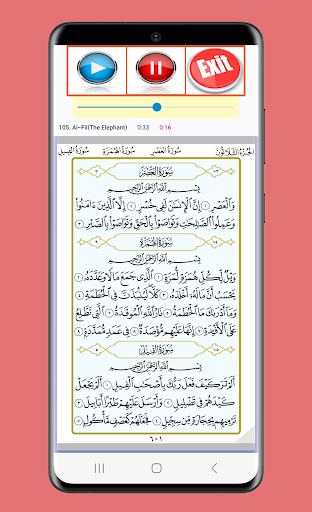 Exit
105. Al-Fil(The Elephant) 0:33 0:16
الجزء الثلاثون سورة العصر سورة الهمزة سورة الفيل
سُورَةُ العَصْرِ
بِسْمِ اللَّهِ الرَّحْمَٰنِ الرَّحِيمِ
وَالْعَصْرِ ١ إِنَّ الْإِنسَانَ لَفِي خُسْرٍ ٢ إِلَّا الَّذِينَ ءَامَنُوا
وَعَمِلُوا الصَّالِحَاتِ وَتَوَاصَوْا بِالْحَقِّ وَتَوَاصَوْا بِالصَّبْرِ ٣
سُورَةُ الهُمَزَةِ
بِسْمِ اللَّهِ الرَّحْمَٰنِ الرَّحِيمِ
وَيْلٌ لِّكُلِّ هُمَزَةٍ لُّمَزَةٍ ١ الَّذِي جَمَعَ مَالًا وَعَدَّدَهُ ٢
يَحْسَبُ أَنَّ مَالَهُ أَخْلَدَهُ ٣ كَلَّا لَيُنبَذَنَّ فِي الْحُطَمَةِ ٤
وَمَا أَدْرَاكَ مَا الْحُطَمَةُ ٥ نَارُ اللَّهِ الْمُوقَدَةُ ٦ الَّتِي تَطَّلِعُ
عَلَى الْأَفْئِدَةِ ٧ إِنَّهَا عَلَيْهِم مُّؤْصَدَةٌ ٨ فِي عَمَدٍ مُّمَدَّدَةٍ ٩
سُورَةُ الفِيلِ
بِسْمِ اللَّهِ الرَّحْمَٰنِ الرَّحِيمِ
أَلَمْ تَرَ كَيْفَ فَعَلَ رَبُّكَ بِأَصْحَابِ الْفِيلِ ١ أَلَمْ يَجْعَلْ
كَيْدَهُمْ فِي تَضْلِيلٍ ٢ وَأَرْسَلَ عَلَيْهِمْ طَيْرًا أَبَابِيلَ ٣
تَرْمِيهِم بِحِجَارَةٍ مِّن سِجِّيلٍ ٤ فَجَعَلَهُمْ كَعَصْفٍ مَّأْكُولٍ ٥
٦٠١